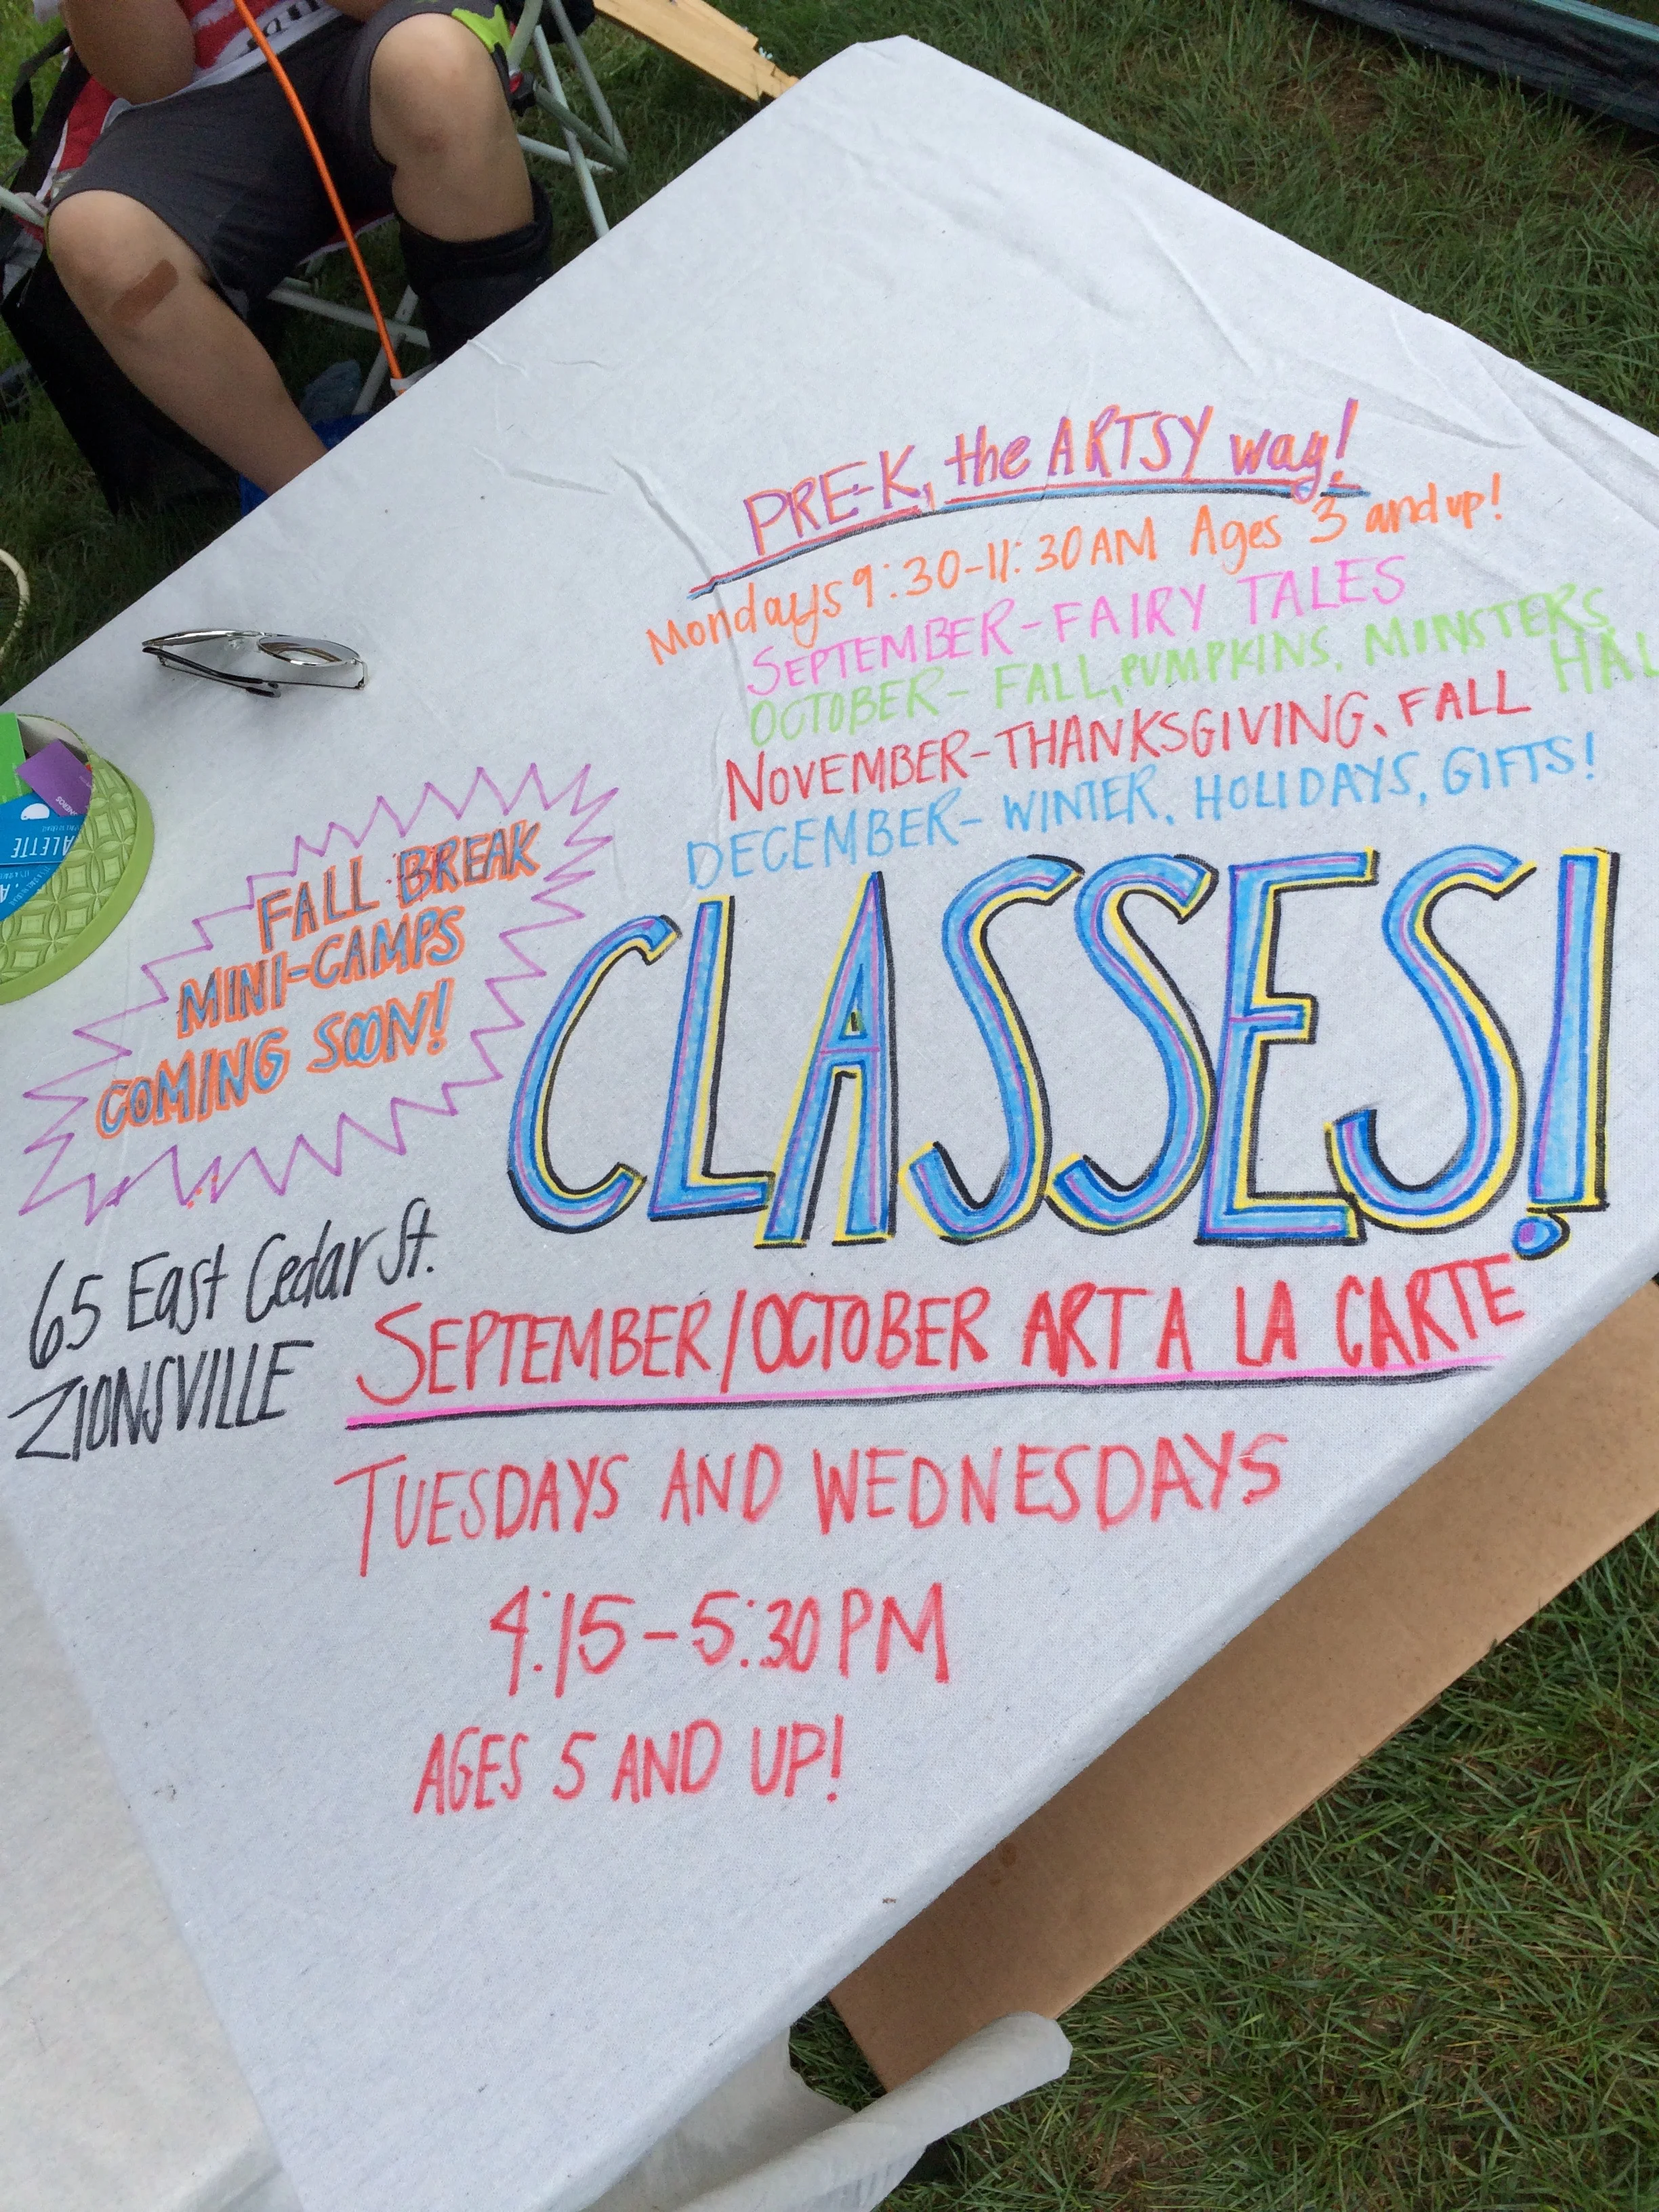 PRE-K, the ARTSY way!
Mondays 9:30-11:30AM Ages 3 and up!
SEPTEMBER-FAIRY TALES
OCTOBER- FALL, PUMPKINS, MONSTERS
HAL
NOVEMBER-THANKSGIVING, FALL
DECEMBER- WINTER, HOLIDAYS, GIFTS!
FALL BREAK
MINI-CAMPS
COMING SOON!
CLASSES!
65 East Cedar St.
ZIONSVILLE
SEPTEMBER/OCTOBER ART A LA CARTE
TUESDAYS AND WEDNESDAYS
4:15-5:30PM
AGES 5 AND UP!
ALETTE